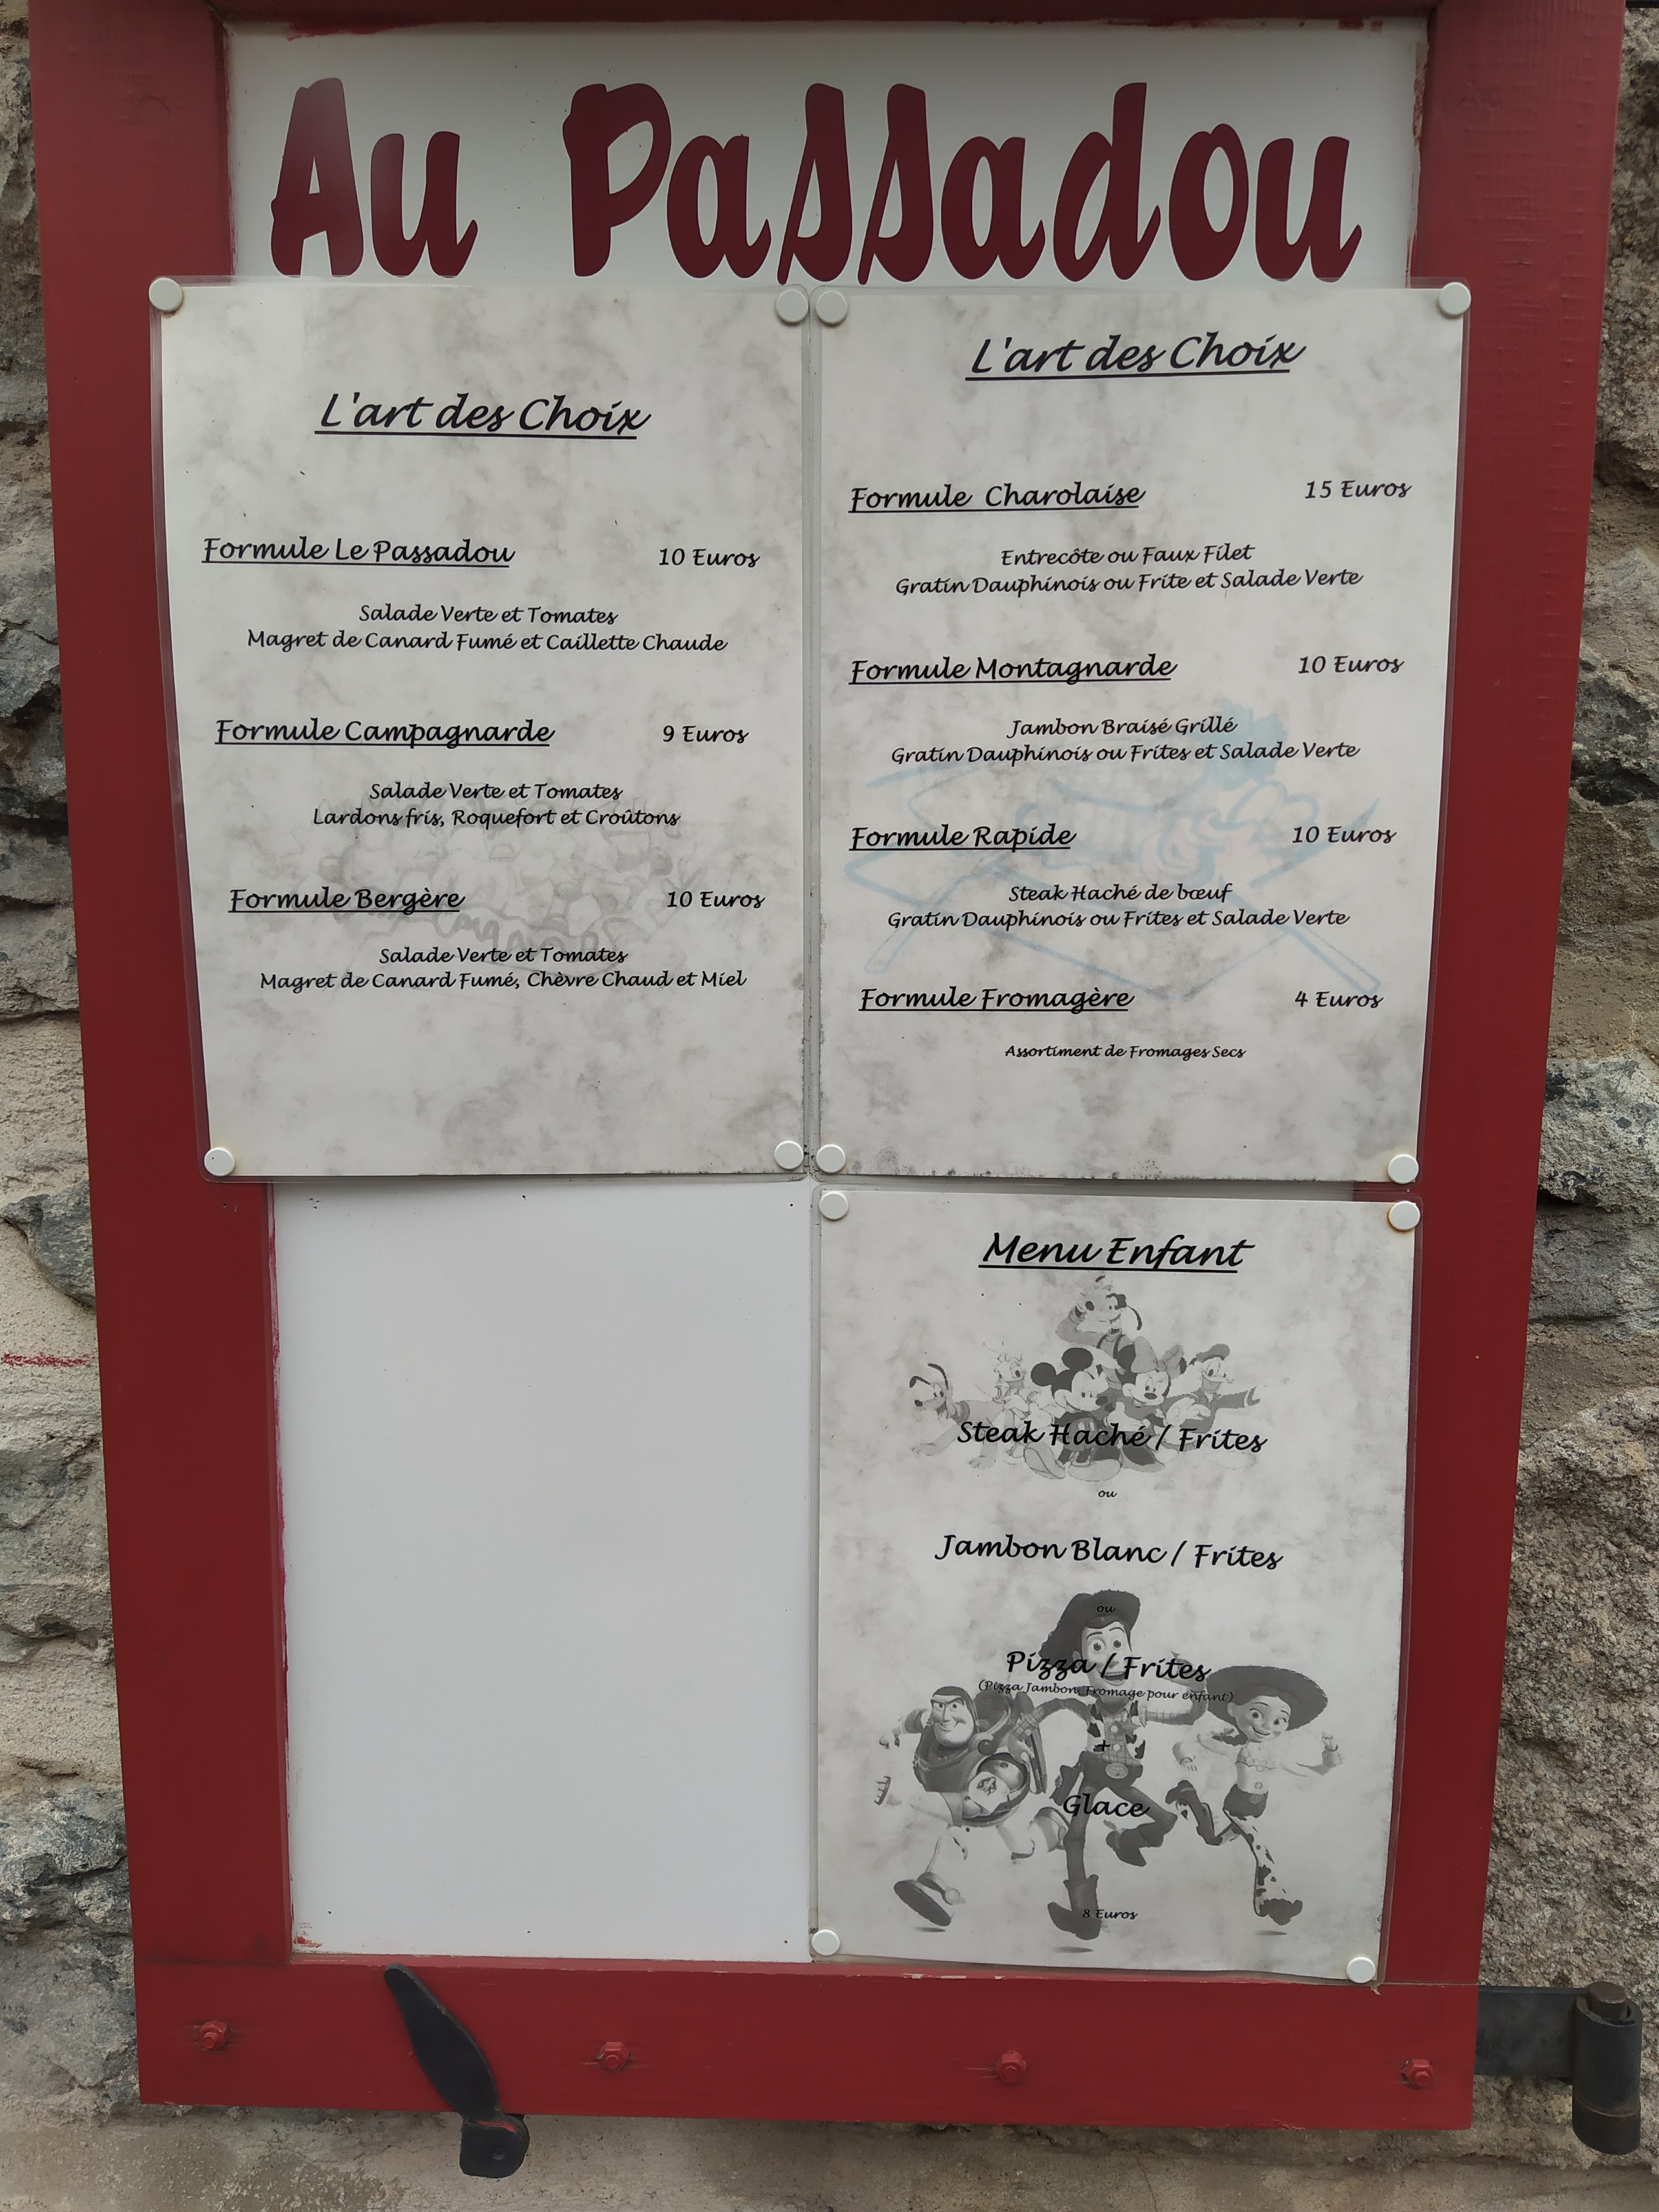 Au Passadou
L'art des Choix
Formule Le Passadou 10 Euros
Salade Verte et Tomates
Magret de Canard Fumé et Caillette Chaude
Formule Campagnarde 9 Euros
Salade Verte et Tomates
Lardons fris, Roquefort et Croûtons
Formule Bergère 10 Euros
Salade Verte et Tomates
Magret de Canard Fumé, Chèvre Chaud et Miel
L'art des Choix
Formule Charolaise 15 Euros
Entrecôte ou Faux Filet
Gratin Dauphinois ou Frite et Salade Verte
Formule Montagnarde 10 Euros
Jambon Braisé Grillé
Gratin Dauphinois ou Frites et Salade Verte
Formule Rapide 10 Euros
Steak Haché de bœuf
Gratin Dauphinois ou Frites et Salade Verte
Formule Fromagère 4 Euros
Assortiment de Fromages Secs
Menu Enfant
Steak Haché / Frites
ou
Jambon Blanc / Frites
ou
Pizza / Frites
(Pizza Jambon, Fromage pour enfant)
+
Glace
8 Euros